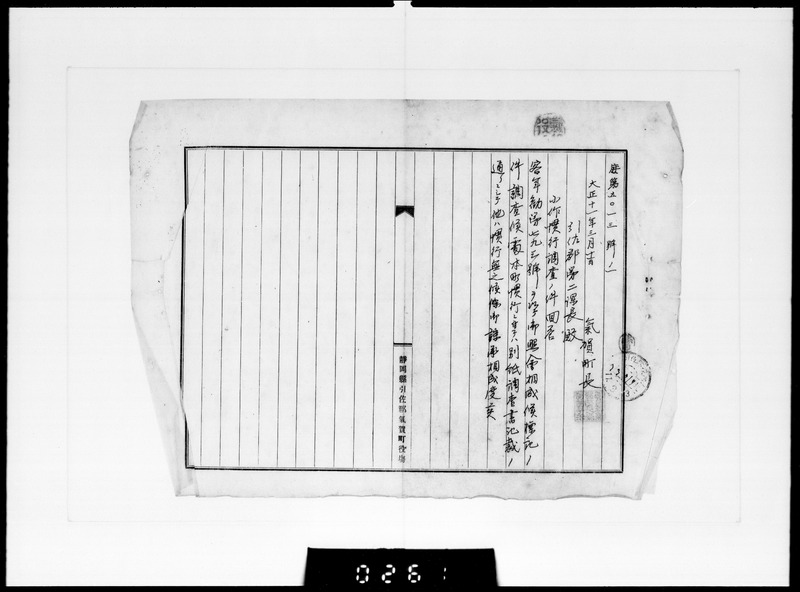 大正十一年三月
氣賀町長
引佐郡第二課長殿
小作慣行調査ノ件回答
客年勧第七九三號ヲ以テ御照會相成候標記ノ
件調査候處本町慣行ハ別紙調査書記載ノ
通リニシテ他ハ慣行無之候條御諒承相成度候
靜岡縣引佐郡氣賀町役場
0261